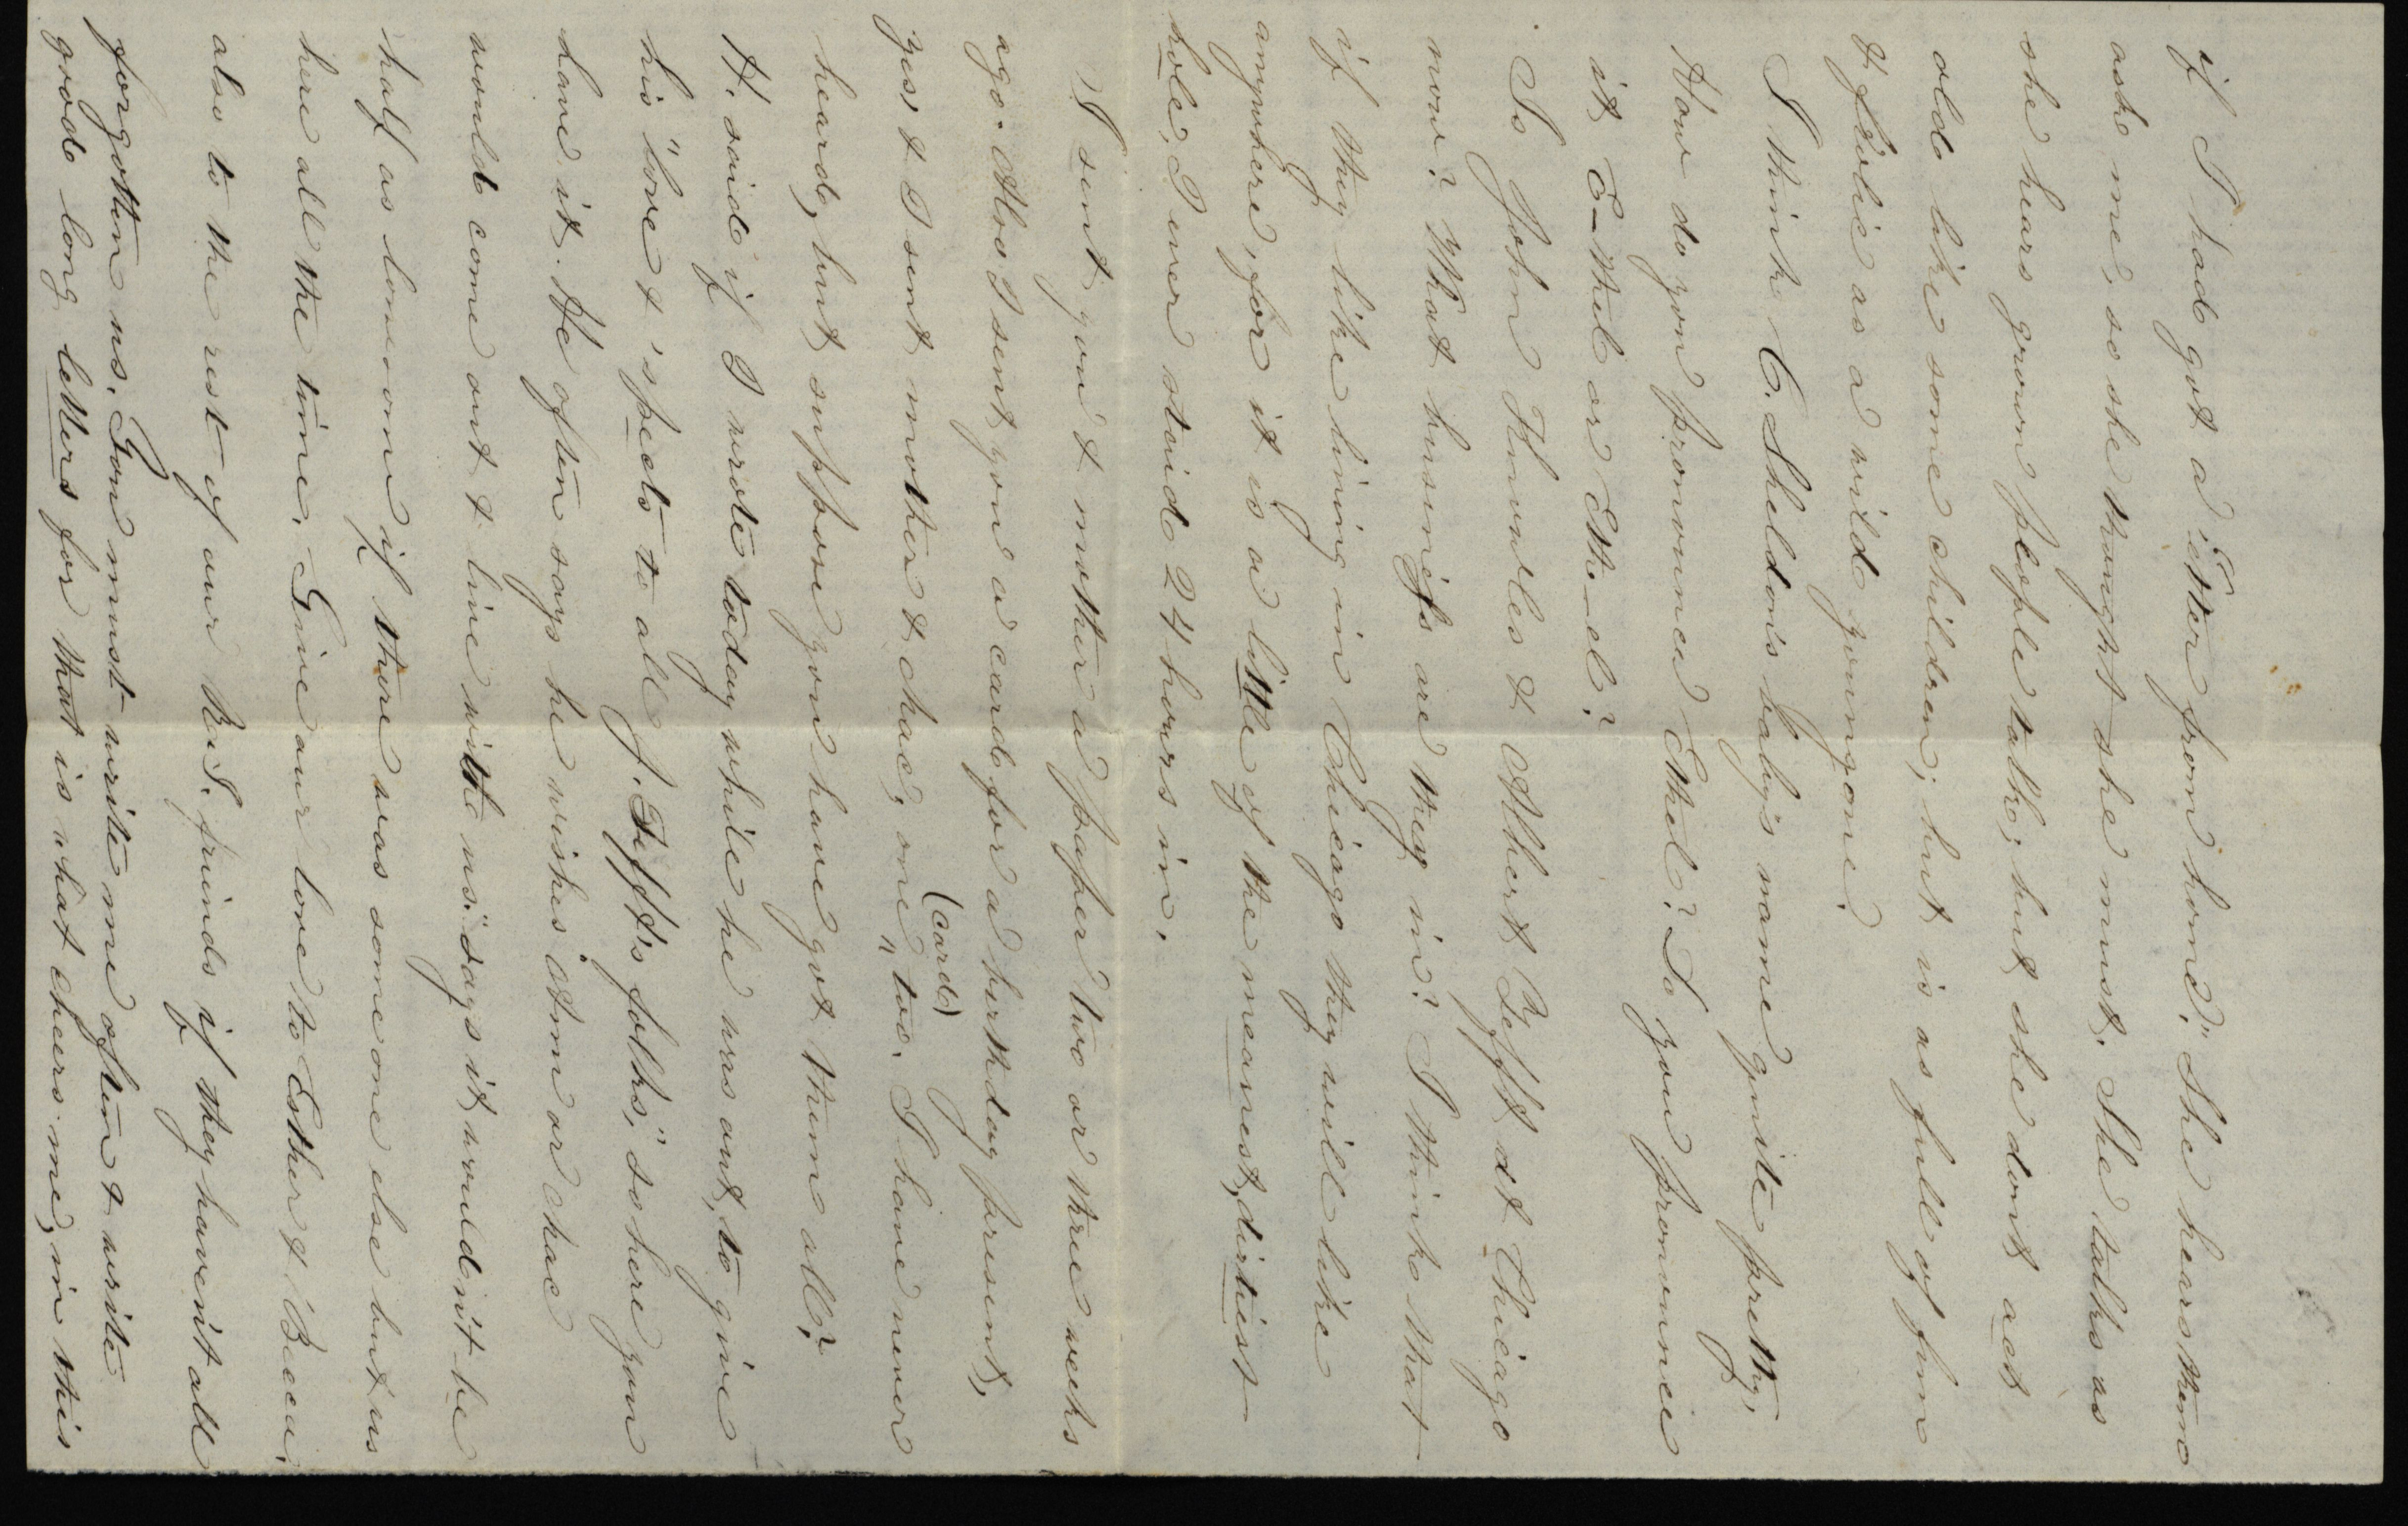 if I had got a "Etter from home." She hears them
ask me, so she thought she must. She talks as
she hears grown people talk; but she dont act
old like some children; but is as full of fun
& frolic as a wild youngone.
I think C. Sheldon's baby's name quite pretty,
How do you pronounce Ethel? Do you pronounce
it E-thel or Eth-el?
Is John Knowles & Albert B. Tefft at Chicago
now? What business are they in? I think that
if they like living in Chicago they will like
anywhere, for it is a little of the meanest, dirtiest
hole, I ever staid 24 hours in.
I sent you & mother a paper two or three weeks
ago. Also I sent you a card for a birthday present,
yes, & I sent mother & chac, one (card) too. I have never
heard, but suppose you have got them all?
H. said if I wrote today while he was out, to give
his "love & 'spects to all J. Tefft's folks," so here you
have it. He often says he wishes Atm or chac
would come out & live with us." Says it would n't be
half as lonesome if there was some one else but us
here all the time. Give our love to Esther & Becca,
also to the rest of our R.I. friends if they haven't all
forgotten us. You must write me often & write
good long letters for that is what cheers me, in this